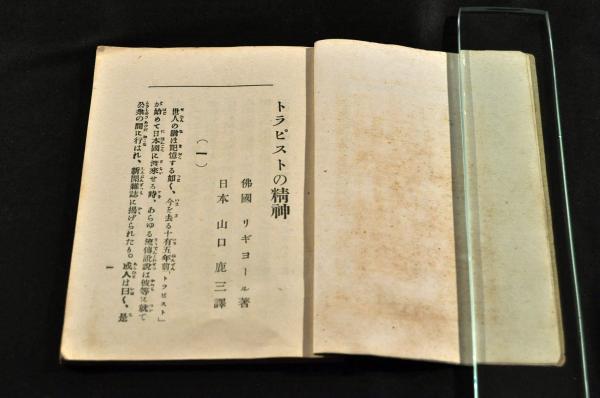 トラピストの精神
佛國 リギョール著
日本 山口鹿三譯
(一)
世人の尙ほ記憶する如く、今を去る十有五年前「トラピスト」
が始めて日本國に渡來せる時、あらゆる 說は彼等に就て
公衆の間に行はれ、新聞雜誌に揭げられたり。或人は曰く、是
一